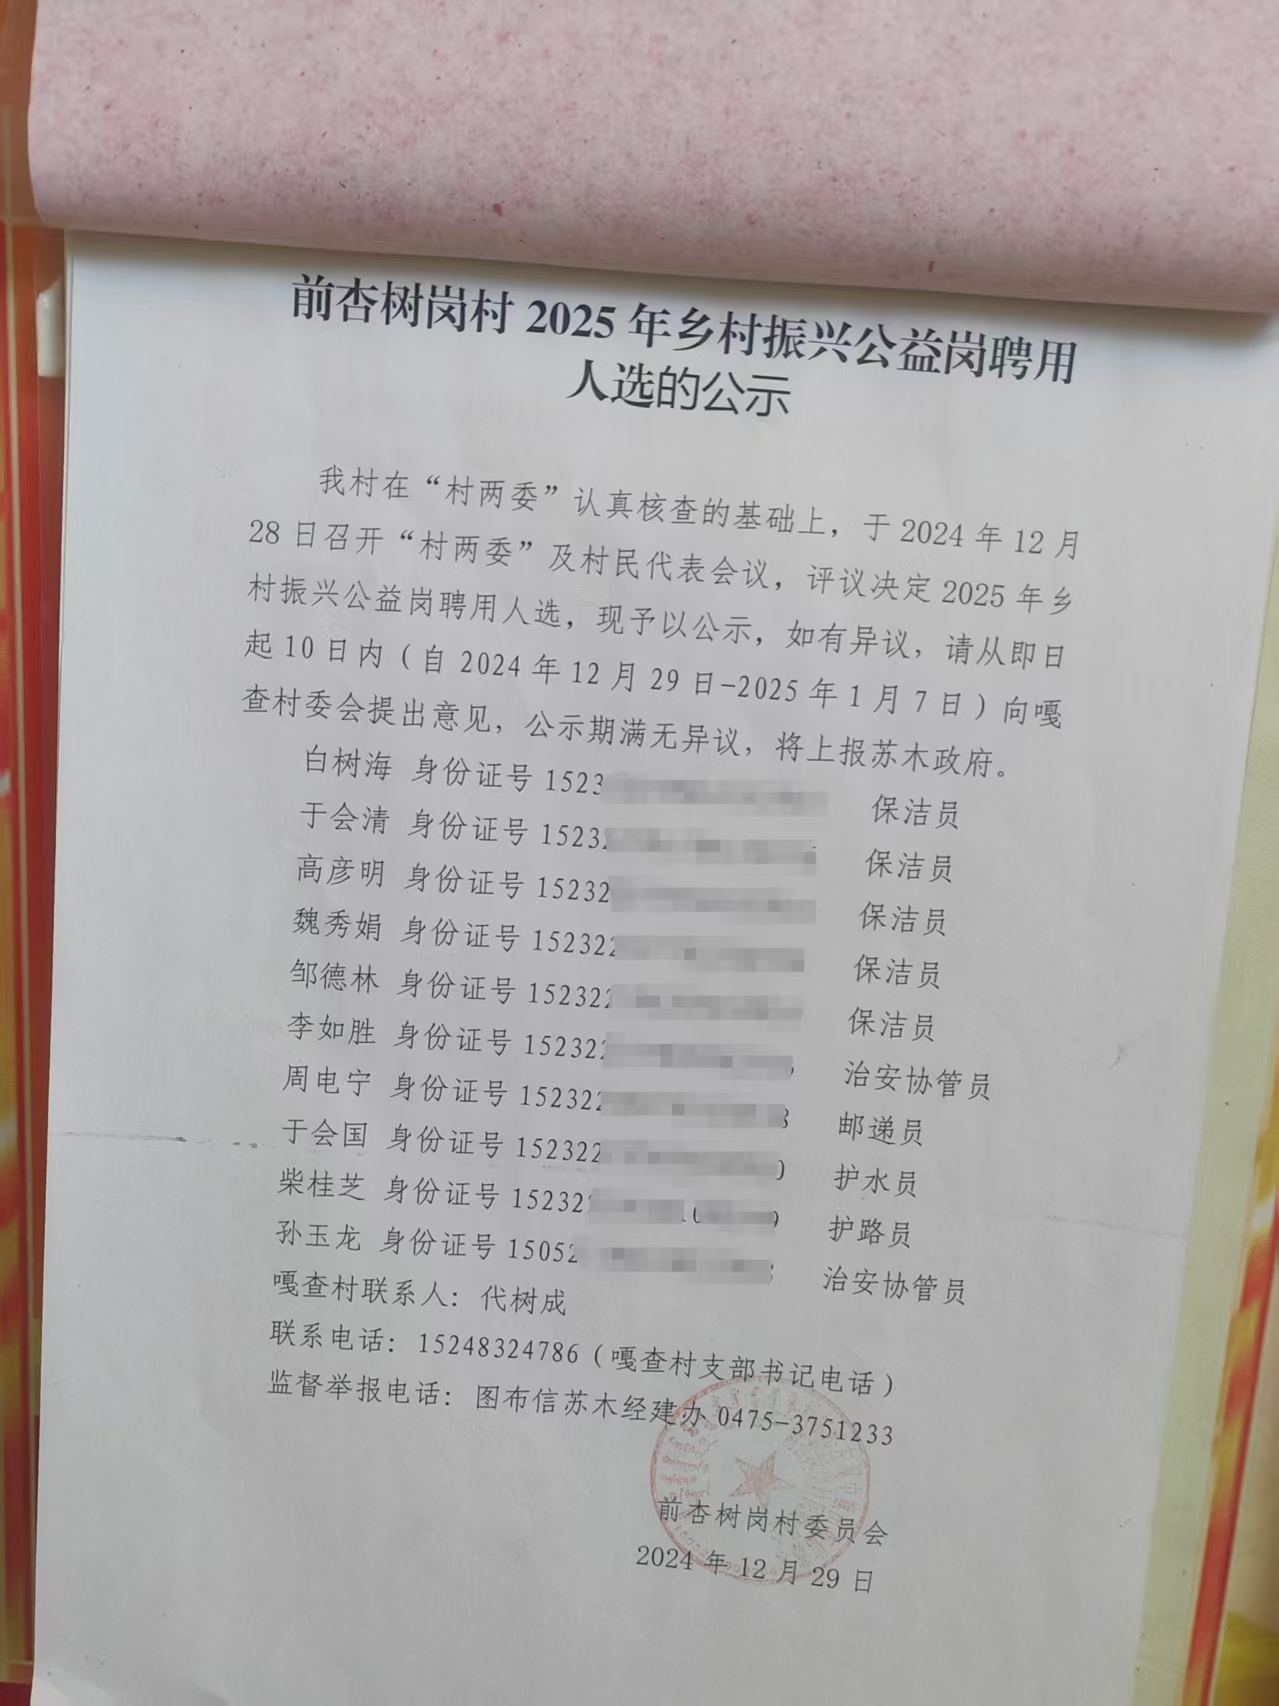 前杏树岗村 2025 年乡村振兴公益岗聘用
人选的公示
我村在“村两委”认真核查的基础上，于 2024 年 12 月
28 日召开“村两委”及村民代表会议，评议决定 2025 年乡
村振兴公益岗聘用人选，现予以公示，如有异议，请从即日
起 10 日内（自 2024 年 12 月 29 日-2025 年 1 月 7 日）向嘎
查村委会提出意见，公示期满无异议，将上报苏木政府。
白树海 身份证号 1523 保洁员
于会清 身份证号 15232 保洁员
高彦明 身份证号 15232 保洁员
魏秀娟 身份证号 152322 保洁员
邹德林 身份证号 152322 保洁员
李如胜 身份证号 152322 治安协管员
周电宁 身份证号 152322 8 邮递员
于会国 身份证号 152322 0 护水员
柴桂芝 身份证号 152322 10 9 护路员
孙玉龙 身份证号 15052 治安协管员
嘎查村联系人：代树成
联系电话：15248324786（嘎查村支部书记电话）
监督举报电话：图布信苏木经建办 0475-3751233
前杏树岗村委员会
2024 年 12 月 29 日